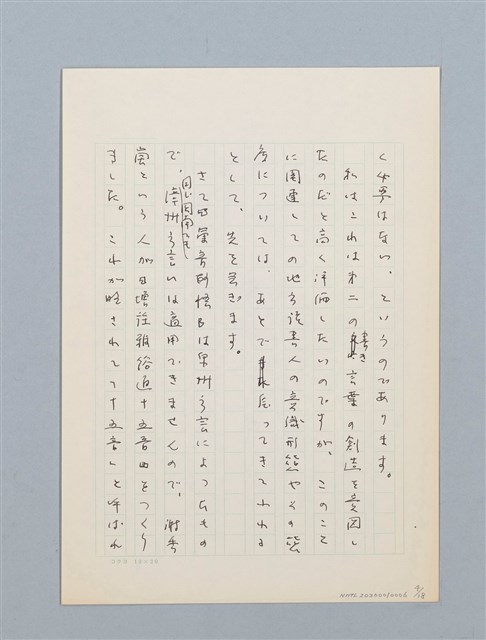 く必要はない、というのであります。
私はこれは第二の書き言葉の創造を意図し
たのだと高く評価したいのですが、このこと
に関連しての地方読書人の意識形態やその態
度については、あとで戻ってきてふれる
として、先を急ぎます。
さて『彙音妙悟』は泉州方言によったもの
で、同じ閩南でも漳州方言には適用できませんので、謝秀
嵐という人が『増註雅俗通十五音』をつくり
ました。これが略されて『十五音』と呼ばれ
コクヨ
4/18